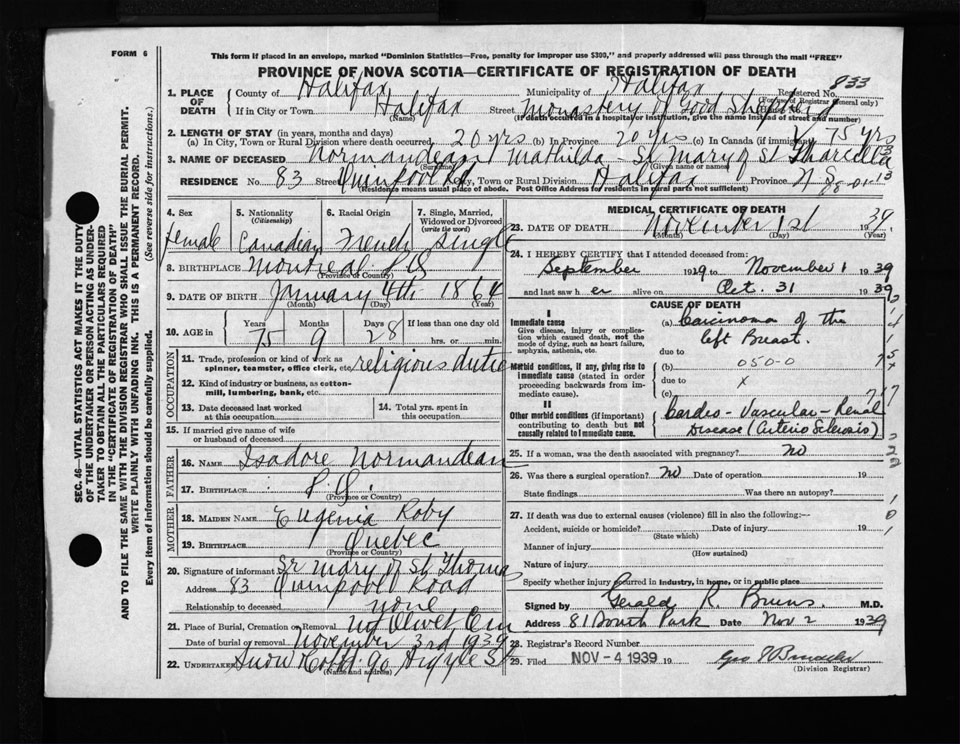 FORM 6
This form if placed in an envelope, marked "Dominion Statistics—Free, penalty for improper use $300," and properly addressed will pass through the mail "FREE"
PROVINCE OF NOVA SCOTIA—CERTIFICATE OF REGISTRATION OF DEATH
SEC. 46—VITAL STATISTICS ACT MAKES IT THE DUTY
OF THE UNDERTAKER OR PERSON ACTING AS UNDER-
TAKER TO OBTAIN ALL THE PARTICULARS REQUIRED
IN THE "CERTIFICATE OF REGISTRATION OF DEATH"
AND TO FILE THE SAME WITH THE DIVISION REGISTRAR WHO SHALL ISSUE THE BURIAL PERMIT.
WRITE PLAINLY WITH UNFADING INK. THIS IS A PERMANENT RECORD.
Every item of information should be carefully supplied. (See reverse side for instructions.)
1. PLACE OF DEATH
County of Halifax Municipality of Halifax Registered No. 833
(For use of Registrar General only)
If in City or Town Halifax Street Monastery of Good Shepherd
(Name) (If death occurred in a hospital or institution, give the name instead of street and number)
2. LENGTH OF STAY (in years, months and days)
(a) In City, Town or Rural Division where death occurred 20 yrs (b) In Province 20 yrs (c) In Canada (if immigrant) 75 yrs
3. NAME OF DECEASED Normandeau Mathilda - Sr Mary of St
(Surname) (Given name or names)
RESIDENCE No. 83 Street Quinpool Rd City, Town or Rural Division Halifax Province N S
Residence means usual place of abode. Post Office Address for residents in rural parts not sufficient)
4. Sex female
5. Nationality (Citizenship) Canadian
6. Racial Origin French
7. Single, Married, Widowed or Divorced (write the word) Single
8. BIRTHPLACE Montreal P Q
(Province or Country)
9. DATE OF BIRTH January 4th 1864
(Month) (Day) (Year)
10. AGE in Years 75 Months 9 Days 28 If less than one day old hrs. or min.
OCCUPATION
11. Trade, profession or kind of work as spinner, teamster, office clerk, etc. religious duties
12. Kind of industry or business, as cotton-mill, lumbering, bank, etc.
13. Date deceased last worked at this occupation
14. Total yrs. spent in this occupation
15. If married give name of wife or husband of deceased
FATHER
16. NAME Isadore Normandeau
17. BIRTHPLACE P. Q.
(Province or Country)
MOTHER
18. MAIDEN NAME Eugenia Roby
19. BIRTHPLACE Quebec
(Province or Country)
20. Signature of informant Sr Mary of St Thomas
Address 83 Quinpool Road
Relationship to deceased none
21. Place of Burial, Cremation or Removal Mt Olivet Cem
Date of burial or removal November 3rd 1939
22. UNDERTAKER Snow Co Ltd 90 Argyle St
(Name and address)
MEDICAL CERTIFICATE OF DEATH
23. DATE OF DEATH November 1st 1939
(Month) (Day) (Year)
24. I HEREBY CERTIFY that I attended deceased from:
September 1929 to November 1 1939
and last saw her alive on Oct. 31 1939
CAUSE OF DEATH
I
Immediate cause
Give disease, injury or complication which caused death, not the mode of dying, such as heart failure, asphyxia, asthenia, etc.
(a) Carcinoma of the
left Breast.
due to
Morbid conditions, if any, giving rise to immediate cause (stated in order proceeding backwards from immediate cause).
(b) 050-0
due to x
(c)
II
Other morbid conditions (if important) contributing to death but not causally related to immediate cause.
Cardio-Vascular-Renal
Disease (Arterio Sclerosis)
25. If a woman, was the death associated with pregnancy? No
26. Was there a surgical operation? No Date of operation 19
State findings Was there an autopsy?
27. If death was due to external causes (violence) fill in also the following:—
Accident, suicide or homicide? Date of injury 19
(State which)
Manner of injury
(How sustained)
Nature of injury
Specify whether injury occurred in industry, in home, or in public place
Signed by Gerald R. Burns. M.D.
Address 81 South Park Date Nov 2 1939
28. Registrar's Record Number
29. Filed NOV - 4 1939 19
(Division Registrar)